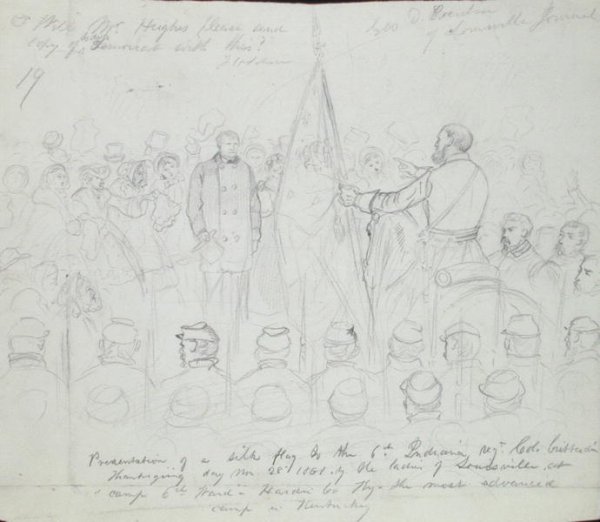 Will Mr Hughes please send
copy of tomorrow with this?
Geo D.
of Louisville Journal
19
Presentation of a silk flag to the 6th Indiana regt Col. Crittenden
Thanksgiving day Nov. 28th 1861 by the ladies of Louisville, at
camp 6th Ward" Hardin Co Ky. the most advanced
camp in Kentucky